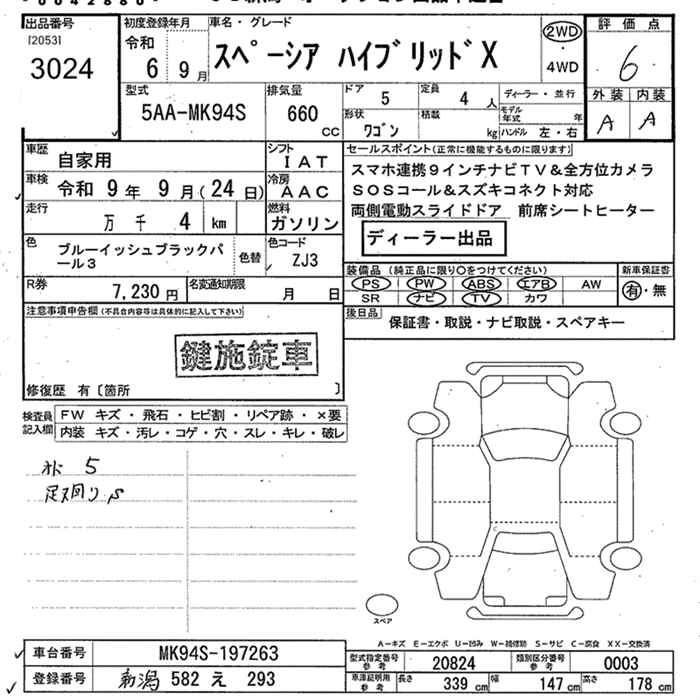 出品番号
[2053]
3024
初度登録年月
令和
6 9月
車名・グレード
スペーシア ハイブリッドX
2WD
・
4WD
評価点
6
外装 内装
A A
型式
5AA-MK94S
排気量
660
CC
ドア
5
定員
4 人
形状
ワゴン
積載
kg
ディーラー・並行
モデル
年式 年
ハンドル 左・右
車歴
自家用
シフト
IAT
車検
令和 9年 9月(24日)
冷房
AAC
走行
万 千 4 km
燃料
ガソリン
色
ブルーイッシュブラックパ
ール3
色替
色コード
ZJ3
R券
7,230円
名変通知期限
月 日
セールスポイント(正常に機能するものに限ります)
スマホ連携9インチナビTV&全方位カメラ
SOSコール&スズキコネクト対応
両側電動スライドドア 前席シートヒーター
ディーラー出品
装備品(純正品に限り○をつけてください)
PS PW ABS エアB AW
SR ナビ TV カワ
新車保証書
有・無
後日品
保証書・取説・ナビ取説・スペアキー
注意事項申告欄(不具合内容等は具体的に記入して下さい)
鍵施錠車
修復歴 有〔箇所 〕
検査員
記入欄
FW キズ・飛石・ヒビ割・リペア跡・×要
内装 キズ・汚レ・コゲ・穴・スレ・キレ・破レ
5
足廻り S
スペア
A-キズ E-エクボ U-凹み W-補修跡 S-サビ C-腐食 XX-交換済
車台番号
MK94S-197263
登録番号
新潟 582 え 293
型式指定番号
参考
20824
類別区分番号
参考
0003
車庫証明用
参考
長さ
339 cm
幅
147 cm
高さ
178 cm